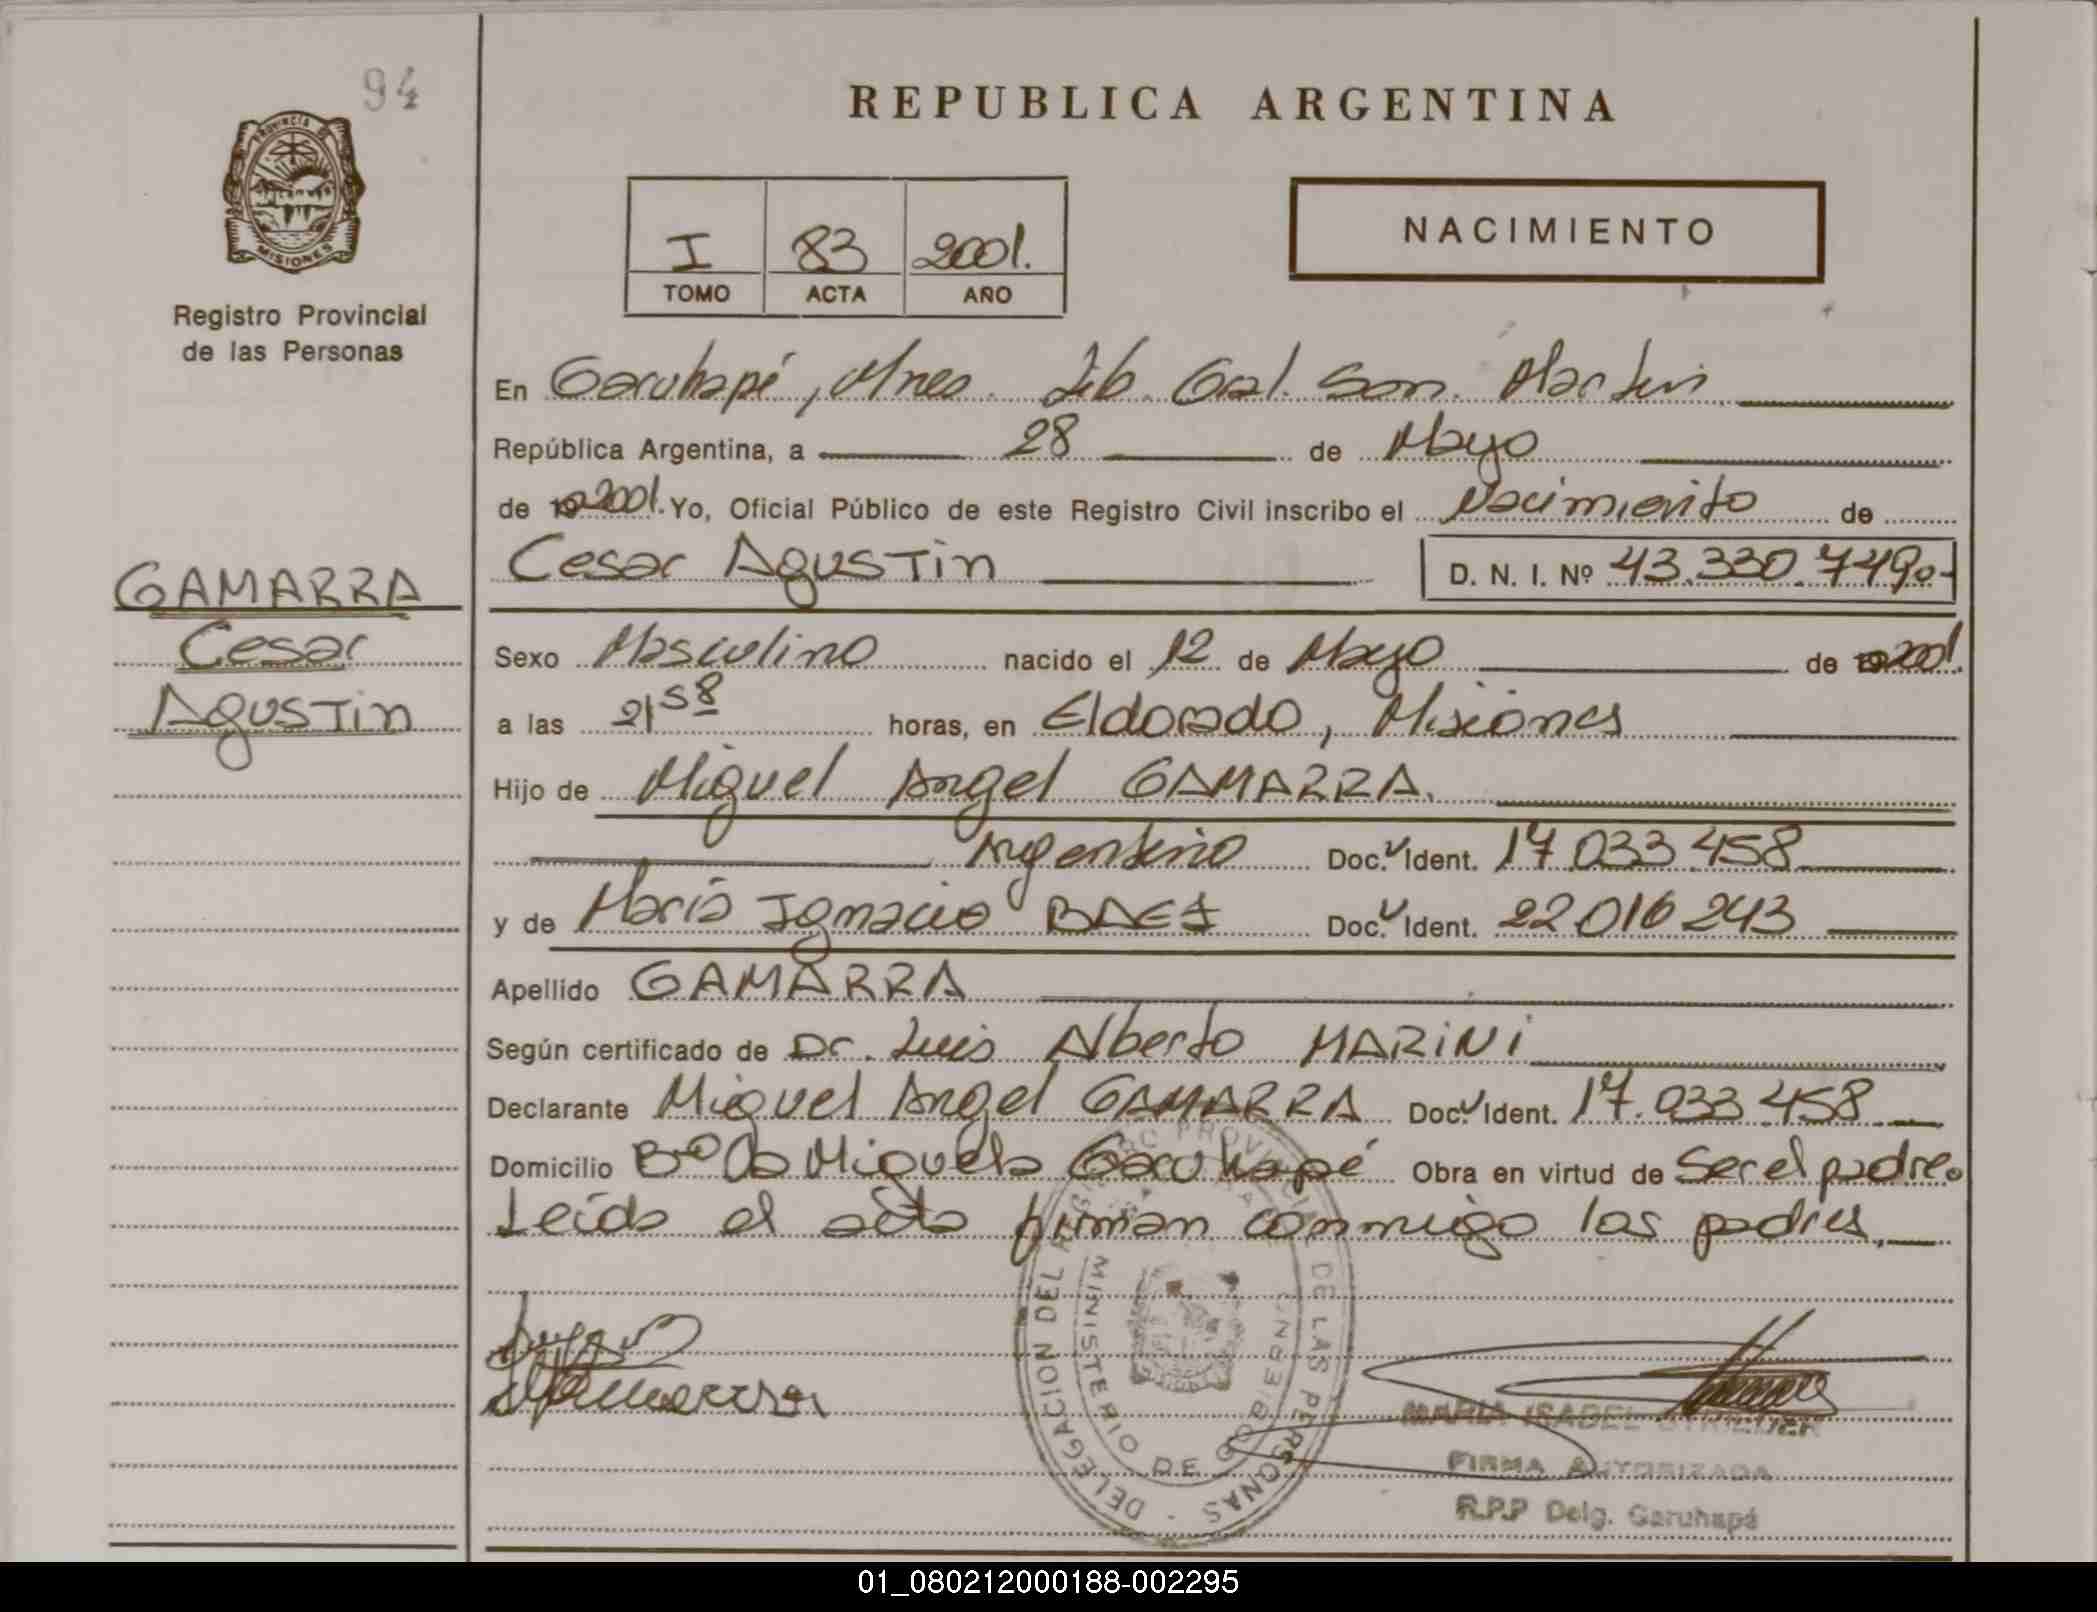 94
REPUBLICA ARGENTINA
PROVINCIA DE
MISIONES
Registro Provincial
de las Personas
I 83 2001.
TOMO ACTA AÑO
NACIMIENTO
En Garuhapé, Mnes. Lib. Gral. San. Martin
República Argentina, a 28 de Mayo
de 19 2001. Yo, Oficial Público de este Registro Civil inscribo el Nacimiento de
Cesar Agustin D. N. I. Nº 43.330.749.-
GAMARRA
Cesar
Agustin
Sexo Masculino nacido el 12 de Mayo de 19 2001.
a las 21 58 horas, en Eldorado, Misiones
Hijo de Miguel Angel GAMARRA.
Argentino Doc. Ident. 17.033.458
y de Maria Ignacia BAEZ Doc. Ident. 22.016.243
Apellido GAMARRA
Según certificado de Dr. Luis Alberto MARINI
Declarante Miguel Angel GAMARRA Doc. Ident. 17.033.458
Domicilio Bº La Miguela Garuhapé Obra en virtud de Ser el padre.
Leída el acta firman conmigo los padres.
DELEGACION DEL REGISTRO PROVINCIAL DE LAS PERSONAS
MINISTERIO DE GOBIERNO
MARIA ISABEL
FIRMA AUTORIZADA
R.P.P Delg. Garuhapé
01_080212000188-002295